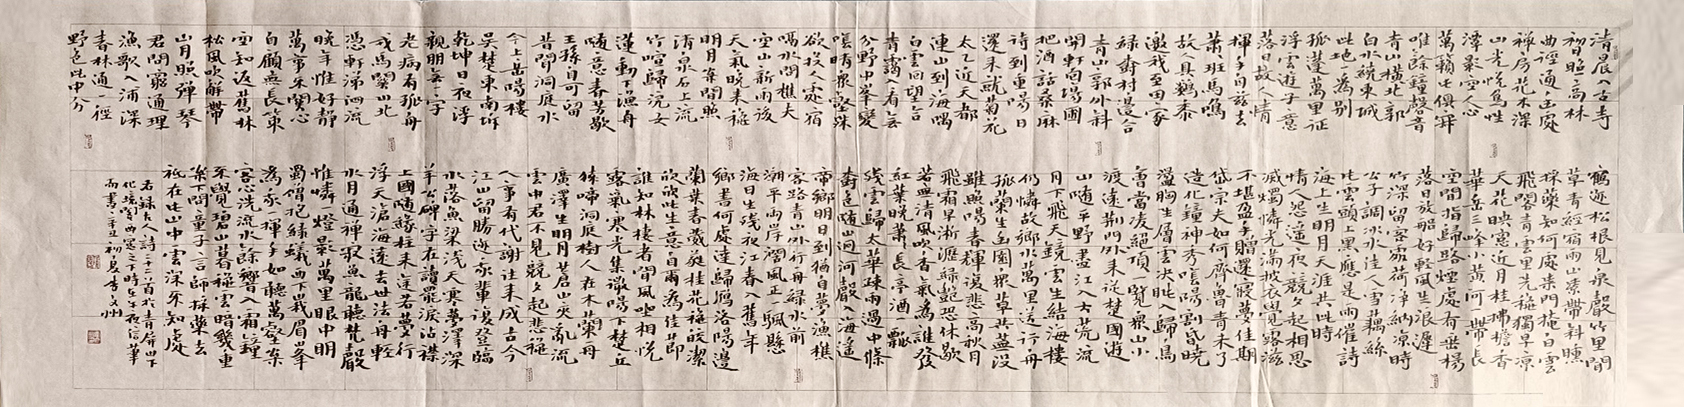 清晨入古寺
初日照高林
曲徑通幽處
禪房花木深
山光悅鳥性
潭影空人心
萬籟此俱寂
唯餘鐘磬音
青山橫北郭
白水繞東城
此地一為別
孤蓬萬里征
浮雲遊子意
落日故人情
揮手自茲去
蕭蕭班馬鳴
故人具鷄黍
邀我至田家
綠樹村邊合
青山郭外斜
開軒面場圃
把酒話桑麻
待到重陽日
還來就菊花
太乙近天都
連山到海隅
白雲回望合
青靄入看無
分野中峯變
陰晴衆壑殊
欲投人處宿
隔水問樵夫
空山新雨後
天氣晚來秋
明月松間照
清泉石上流
竹喧歸浣女
蓮動下漁舟
隨意春芳歇
王孫自可留
昔聞洞庭水
今上岳陽樓
吳楚東南坼
乾坤日夜浮
親朋無一字
老病有孤舟
戎馬關山北
憑軒涕泗流
晚年惟好靜
萬事不關心
自顧無長策
空知返舊林
松風吹解帶
山月照彈琴
君問窮通理
漁歌入浦深
春林通一徑
野色此中分
鶴迹松根見
泉聲竹里聞
草青經宿雨
山紫帶斜曛
採藥知何處
柴門掩白雲
飛閣青雲里
先秋獨早涼
天花映窗近
月桂拂檐香
華岳三峰小
黃河一帶長
空間指歸路
煙處有垂楊
落日放船好
輕風生浪遲
竹深留客處
荷淨納涼時
公子調冰水
佳人雪藕絲
片雲頭上黑
應是雨催詩
海上生明月
天涯共此時
情人怨遙夜
竟夕起相思
滅燭憐光滿
披衣覺露滋
不堪盈手贈
還寢夢佳期
岱宗夫如何
齊魯青未了
造化鐘神秀
陰陽割昏曉
盪胸生層雲
決眥入歸鳥
會當凌絕頂
一覽衆山小
渡遠荊門外
來從楚國遊
山隨平野盡
江入大荒流
月下飛天鏡
雲生結海樓
仍憐故鄉水
萬里送行舟
孤蘭生幽園
衆草共蕪沒
雖照陽春輝
復悲高秋月
飛霜早淅瀝
綠艷恐休歇
若無清風吹
香氣為誰發
紅葉晚蕭蕭
長亭酒一瓢
殘雲歸太華
疎雨過中條
樹色隨山迥
河聲入海遙
帝鄉明日到
猶自夢漁樵
客路青山外
行舟綠水前
潮平兩岸闊
風正一颿懸
海日生殘夜
江春入舊年
鄉書何處達
歸雁洛陽邊
蘭葉春葳蕤
桂花秋皎潔
欣欣此生意
自爾為佳節
誰知林棲者
聞風坐相悅
露氣寒光集
微陽下楚丘
猿啼洞庭樹
人在木蘭舟
廣澤生明月
蒼山夾亂流
雲中君不見
竟夕起悲秋
人事有代謝
往來成古今
江山留勝迹
我輩復登臨
水落魚梁淺
天寒夢澤深
羊公碑字在
讀罷淚沾襟
上國隨緣往
來途若夢行
浮天滄海遠
去世法舟輕
水月通禪寂
魚龍聽梵聲
惟憐一燈影
萬里眼中明
蜀僧抱綠蟻
西下峨眉峯
為我一揮手
如聽萬壑松
客心洗流水
餘響入霜鐘
不覺碧山暮
秋雲暗幾重
松下問童子
言師採藥去
祗在此山中
雲深不知處